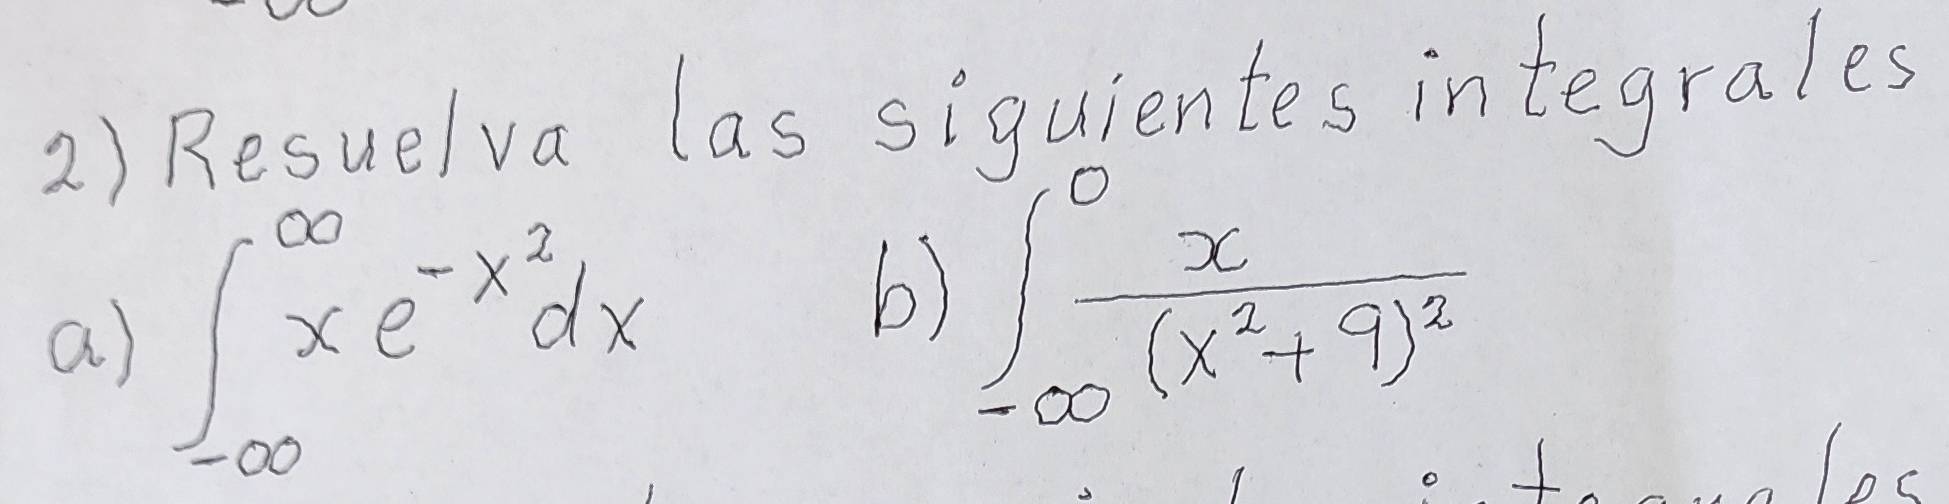 2) Resuelva las siguientes integrales
a) ∫_{-∞}^{∞} x e^{-x^2} dx b) ∫_{-∞}^{0} x/(x^2+9)^2